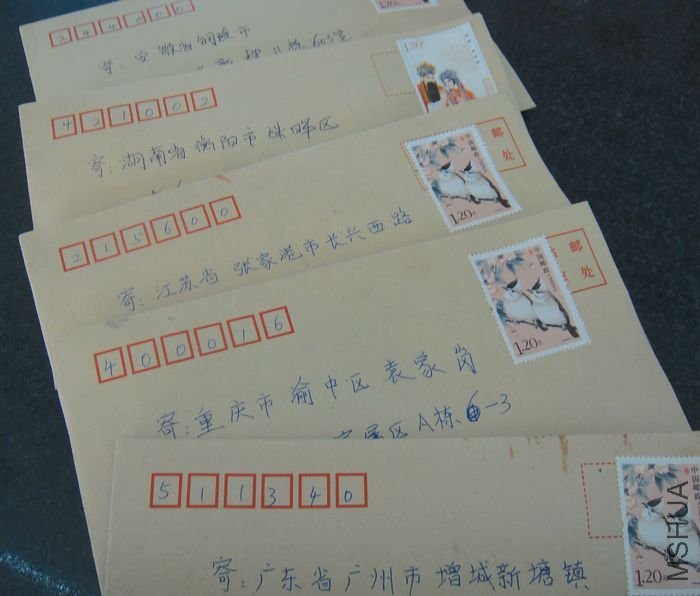 244000
寄: 安徽省铜陵市
11栋 603室
1.20
421002
寄: 湖南省衡阳市珠晖区
1.20
215600
寄: 江苏省 张家港市长兴西路
中国邮政
1.20元
邮
处
400016
寄: 重庆市 渝中区 袁家岗
家属区 A栋 6-3
中国邮政
1.20元
邮
处
511340
寄: 广东省广州市 增城新塘镇
1.20
MSHUA